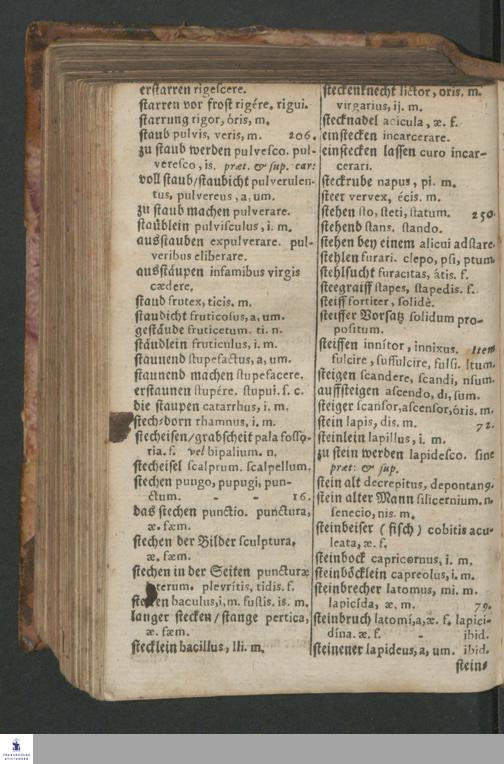 erstarren rigescere.
starren vor frost rigére. rigui.
starrung rigor, óris, m.
staub pulvis, veris, m. 206.
zu staub werden pulvesco. pul-
veresco, is. præt. & sup. car:
voll staub/staubicht pulverulen-
tus, pulvereus, a, um.
zu staub machen pulverare.
stäublein pulvisculus, i. m.
ausstauben expulverare. pul-
veribus eliberare.
ausstäupen infamibus virgis
cædere,
staud frutex, ticis. m.
staudicht fruticosus, a, um.
gestäude fruticetum. ti. n.
stäudlein fruticulus, i. m.
staunend stupefactus, a, um.
staunend machen stupefacere.
erstaunen stupére. stupui. s. c.
die staupen catarrhus, i, m.
stech/dorn rhamnus, i. m.
stecheisen/grabscheit pala fosso-
ria. f. vel bipalium. n.
stecheisel scalprum. scalpellum.
stechen pungo, pupugi, pun-
ctum. - - 16.
das stechen punctio. punctura,
æ. fæm.
stechen der Bilder sculptura,
æ. fæm.
stechen in der Seiten puncturæ
laterum. plevrítis, tidis. f.
stecken baculus, i, m. fustis. is. m.
langer stecken/stange pertica,
æ. fæm.
stecklein bacillus, lli. m.
steckenknecht lictor, oris. m.
virgarius, ij. m.
stecknadel acicula, æ. f.
einstecken incarcerare.
einstecken lassen curo incar-
cerari.
steckrube napus, pi. m.
steer vervex, écis. m.
stehen sto, steti, statum. 250.
stehend stans. stando.
stehen bey einem alicui adstare.
stehlen furari. clepo, psi, ptum.
stehlsucht furacitas, átis. f.
steegraiff stapes, stapedis. f.
steiff fortiter, solidè.
steiffer Vorsatz solidum pro-
positum.
steiffen innítor, innixus. Item
fulcire, suffulcire, fulsi. ltum.
steigen scandere, scandi, nsum.
auffsteigen ascendo, di, sum.
steiger scansor, ascensor, óris. m.
stein lapis, dis. m. 72.
steinlein lapillus, i. m.
zu stein werden lapidesco. sine
præt: & sup.
stein alt decrepitus, depontan9.
stein alter Mann silicernium. n.
senecio, nis. m.
steinbeiser (fisch) cobitis acu-
leata, æ. f.
steinbock capricornus, i. m.
steinböcklein capreolus, i. m.
steinbrecher latomus, mi. m.
lapicída, æ. m. 79.
steinbruch latomí, a, æ. f. lapici-
dína. æ. f. - ibid.
steinener lapideus, a, um. ibid.
stein-